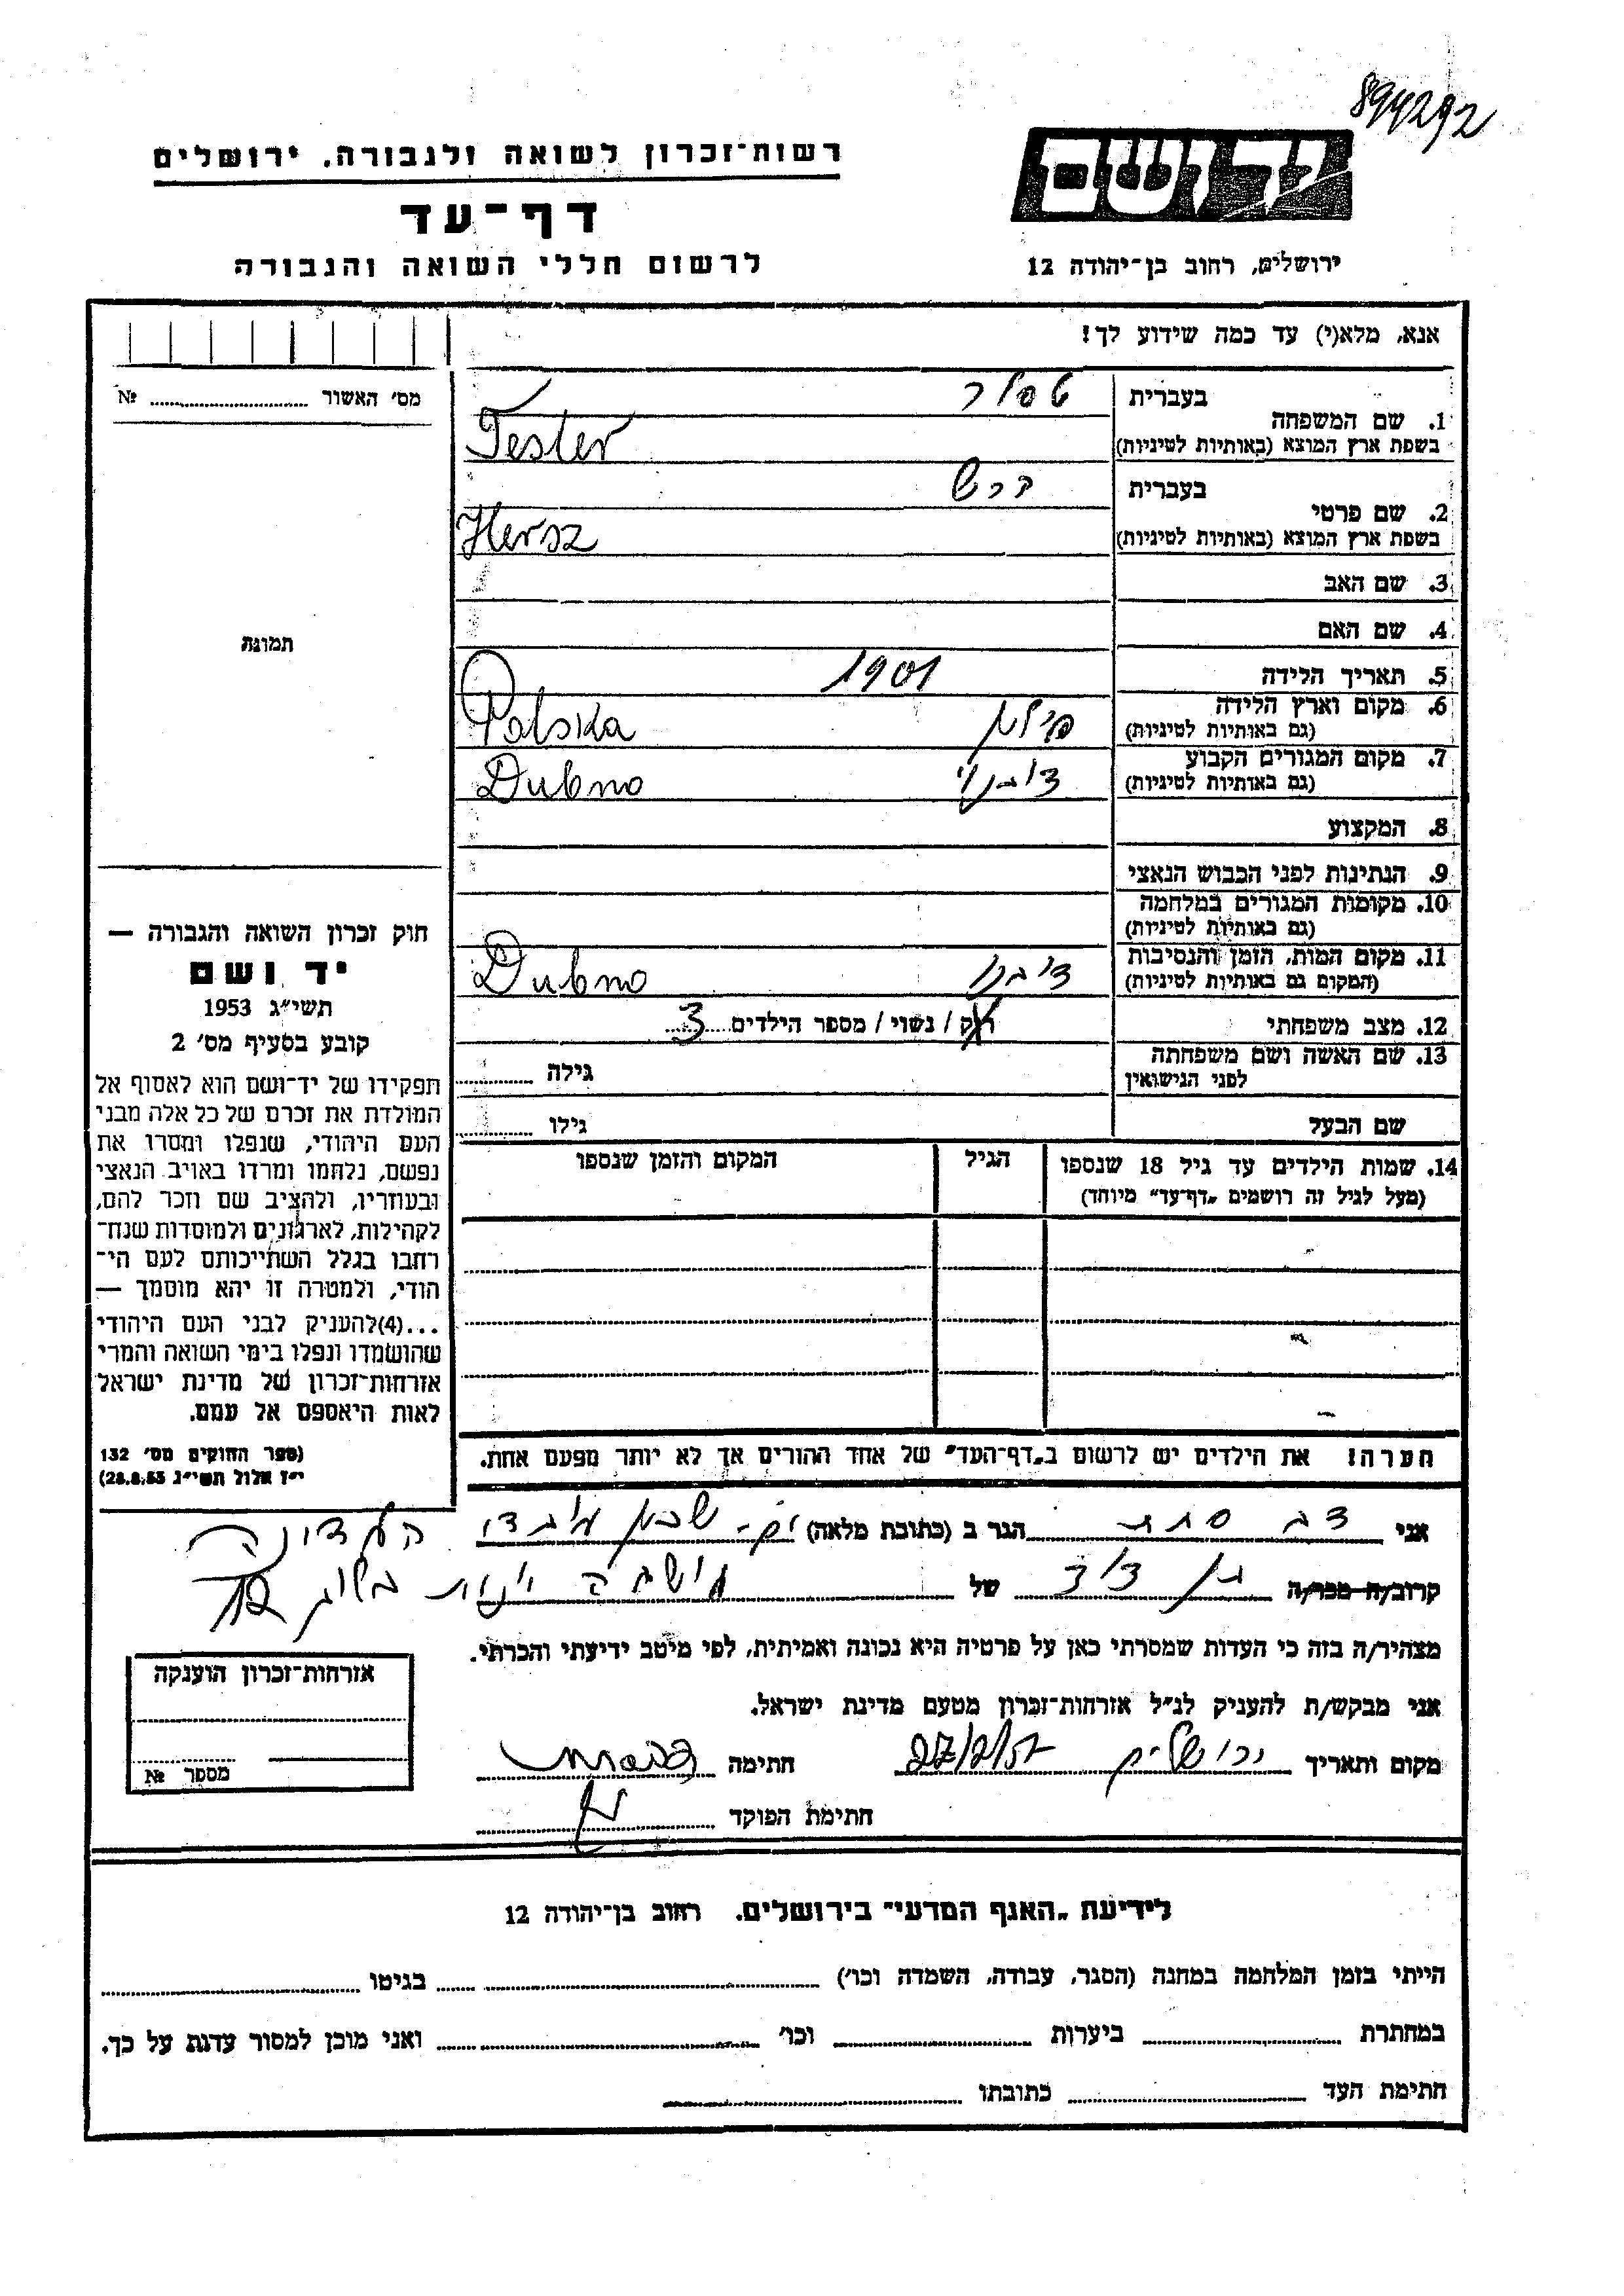 894292
יד ושם
ירושלים, רחוב בן־יהודה 12
רשות־זכרון לשואה ולגבורה, ירושלים
דף־עד
לרשום חללי השואה והגבורה
אנא, מלא(י) עד כמה שידוע לך!
בעברית
1. שם המשפחה
בשפת ארץ המוצא (באותיות לטיניות)
Tesler
בעברית הרש
2. שם פרטי
בשפת ארץ המוצא (באותיות לטיניות)
Hersz
3. שם האב
4. שם האם
5. תאריך הלידה 1901
6. מקום וארץ הלידה פולין Polska
(גם באותיות לטיניות)
7. מקום המגורים הקבוע Dubno
(גם באותיות לטיניות)
8. המקצוע
9. הנתינות לפני הכבוש הנאצי
10. מקומות המגורים במלחמה
(גם באותיות לטיניות)
11. מקום המות, הזמן והנסיבות דובנו Dubno
(המקום גם באותיות לטיניות)
12. מצב משפחתי רוק / נשוי / מספר הילדים 3
13. שם האשה ושם משפחתה
לפני הנישואין
גילה
שם הבעל גילו
14. שמות הילדים עד גיל 18 שנספו הגיל המקום והזמן שנספו
(מעל לגיל זה רושמים „דף־עד” מיוחד)
הערה! את הילדים יש לרשום ב„דף־העד” של אחד ההורים אך לא יותר מפעם אחת.
מס' האשור №
תמונה
חוק זכרון השואה והגבורה —
יד ושם
תשי"ג 1953
קובע בסעיף מס' 2
תפקידו של יד־ושם הוא לאסוף אל
המולדת את זכרם של כל אלה מבני
העם היהודי, שנפלו ומסרו את
נפשם, נלחמו ומרדו באויב הנאצי
ובעוזריו, ולהציב שם וזכר להם,
לקהילות, לארגונים ולמוסדות שנח־
רבו בגלל השתייכותם לעם הי־
הודי, ולמטרה זו יהא מוסמך —
...(4)להעניק לבני העם היהודי
שהושמדו ונפלו בימי השואה והמרי
אזרחות־זכרון של מדינת ישראל
לאות היאספם אל עמם.
(ספר החוקים מס' 132
י"ז אלול תשי"ג 28.8.53)
אני דב הגר ב (כתובת מלאה)
קרוב/ה מכר/ה בן דוד של
מצהיר/ה בזה כי העדות שמסרתי כאן על פרטיה היא נכונה ואמיתית, לפי מיטב ידיעתי והכרתי.
אני מבקש/ת להעניק לנ"ל אזרחות־זכרון מטעם מדינת ישראל.
מקום ותאריך ירושלים חתימה
חתימת הפוקד
אזרחות־זכרון הוענקה
מספר №
לידיעת „האגף המדעי” בירושלים. רחוב בן־יהודה 12
הייתי בזמן המלחמה במחנה (הסגר, עבודה, השמדה וכו') בגיטו
במחתרת ביערות וכו' ואני מוכן למסור עדות על כך.
חתימת העד כתובתו